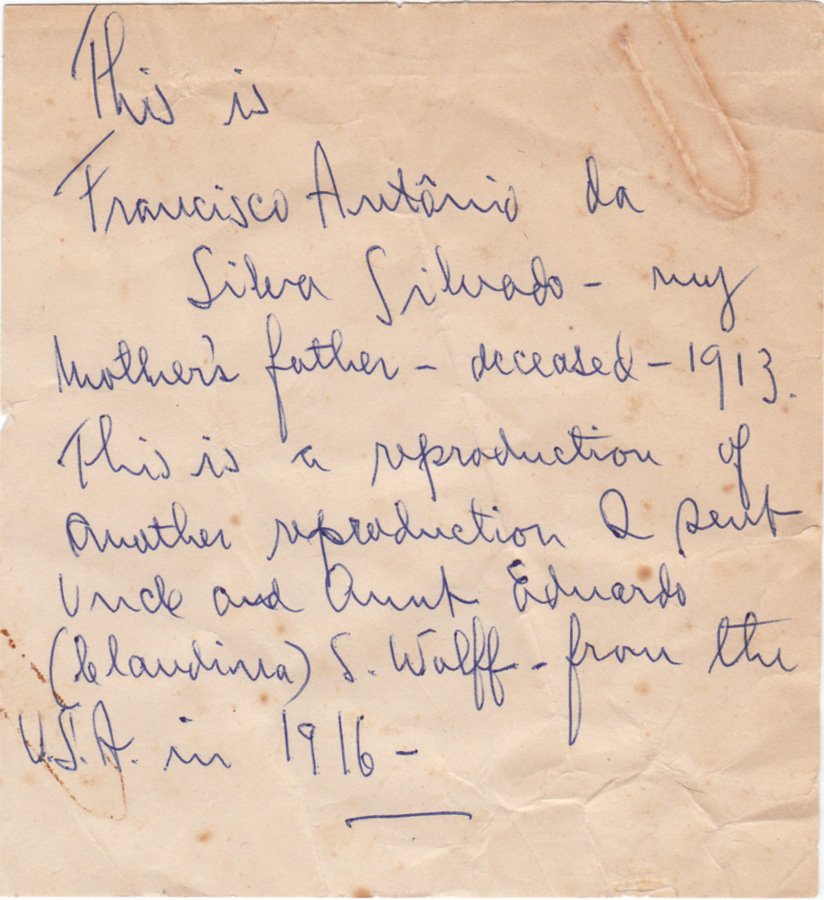 This is
Francisco Antônio da
Silva Silvado - my
Mother's father - deceased - 1913.
This is a reproduction of
another reproduction I sent
Uncle and Aunt Eduardo
(Claudina) S. Wolff - from the
U.S.A. in 1916 -